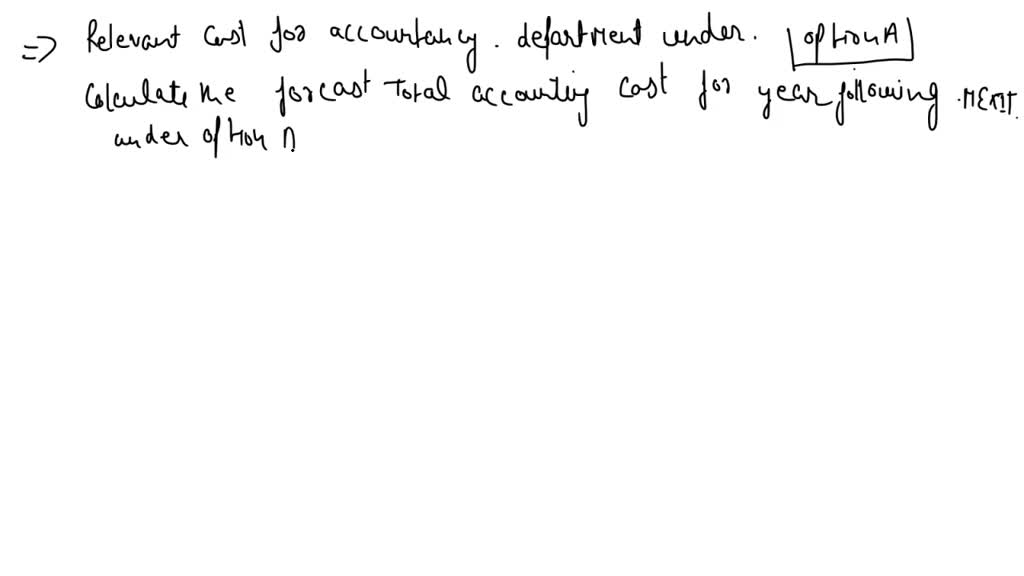 => Relevant Cost for accountancy. department under. option A
Calculate the forcast Total accounting cost for year following
under option A